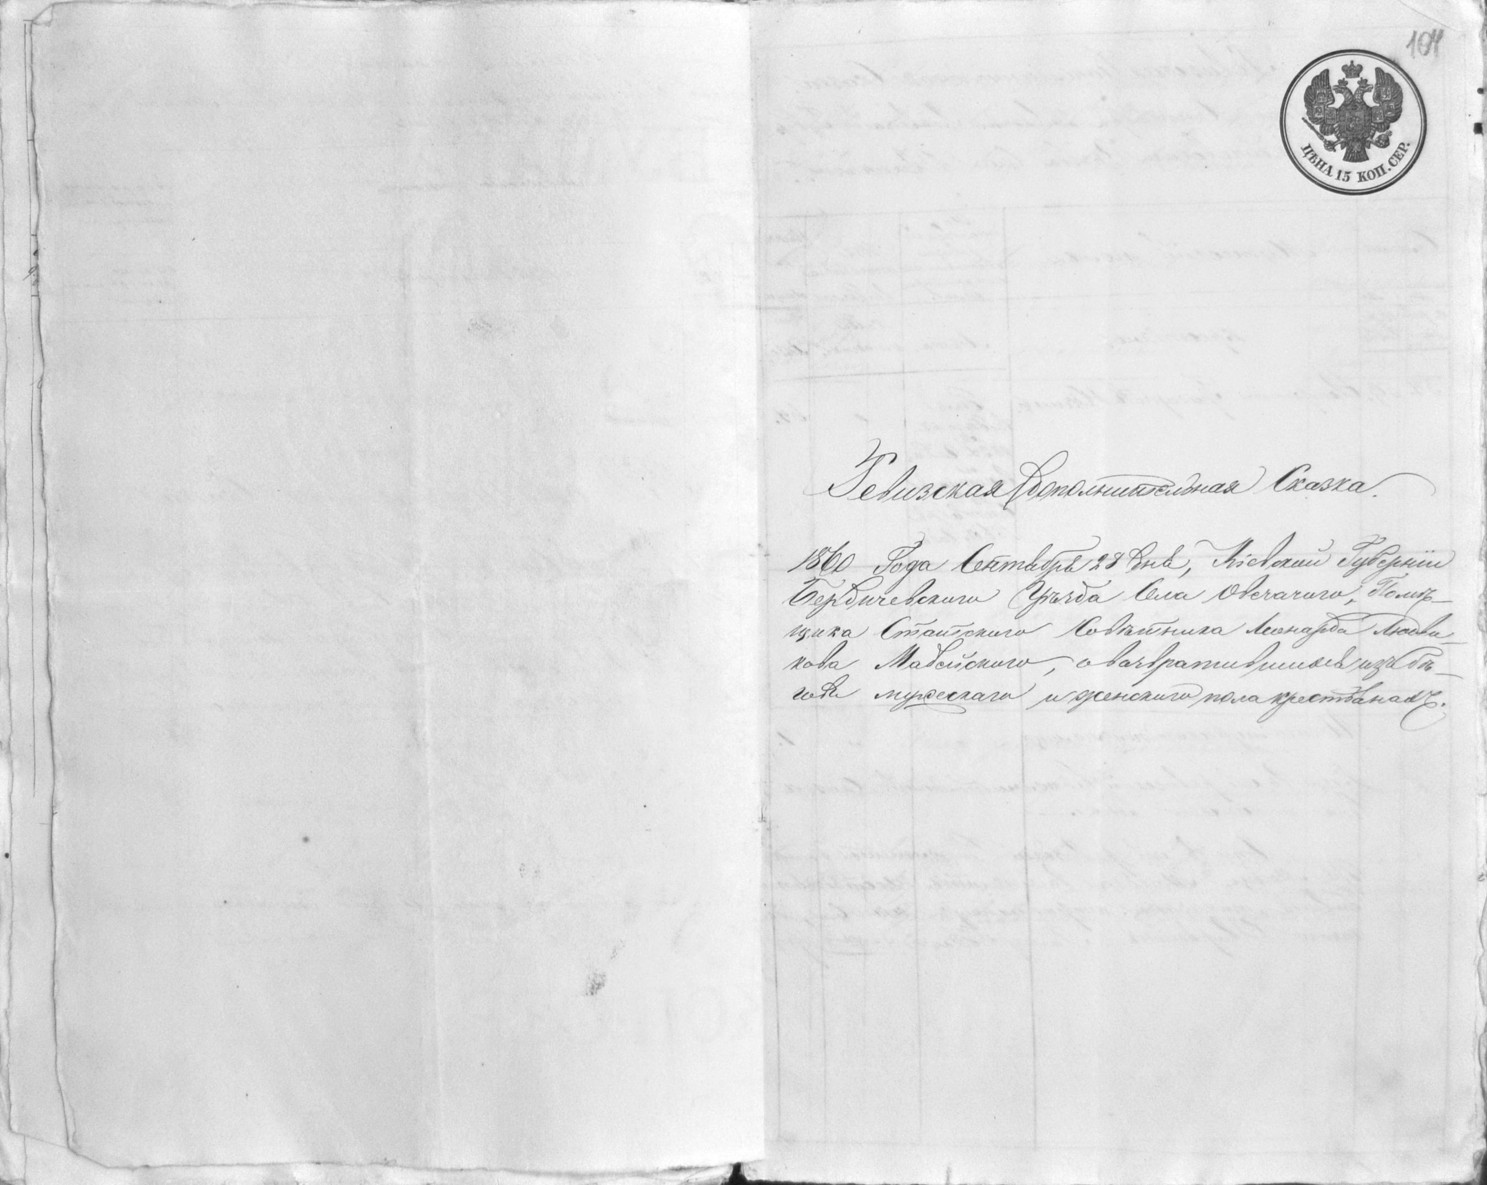 104
ЦѢНА 15 КОП. СЕР.
Ревизская Дополнительная Сказка.
1860 Года Сентября 28 дня, Кіевской Губерніи
Бердичевского Уѣзда Села Овсачого, Помѣ-
щика Статского Совѣтника Леонарда Людви-
кова Мавейского, о возвратившихся изъ бѣ-
говъ мужескаго и женского пола крестьянахъ.